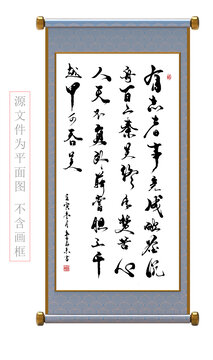 有志者事竟成破釜沉
舟百二秦关终属楚苦心
人天不負卧薪嘗膽三千
越甲可吞吴
源文件为平面图 不含画框